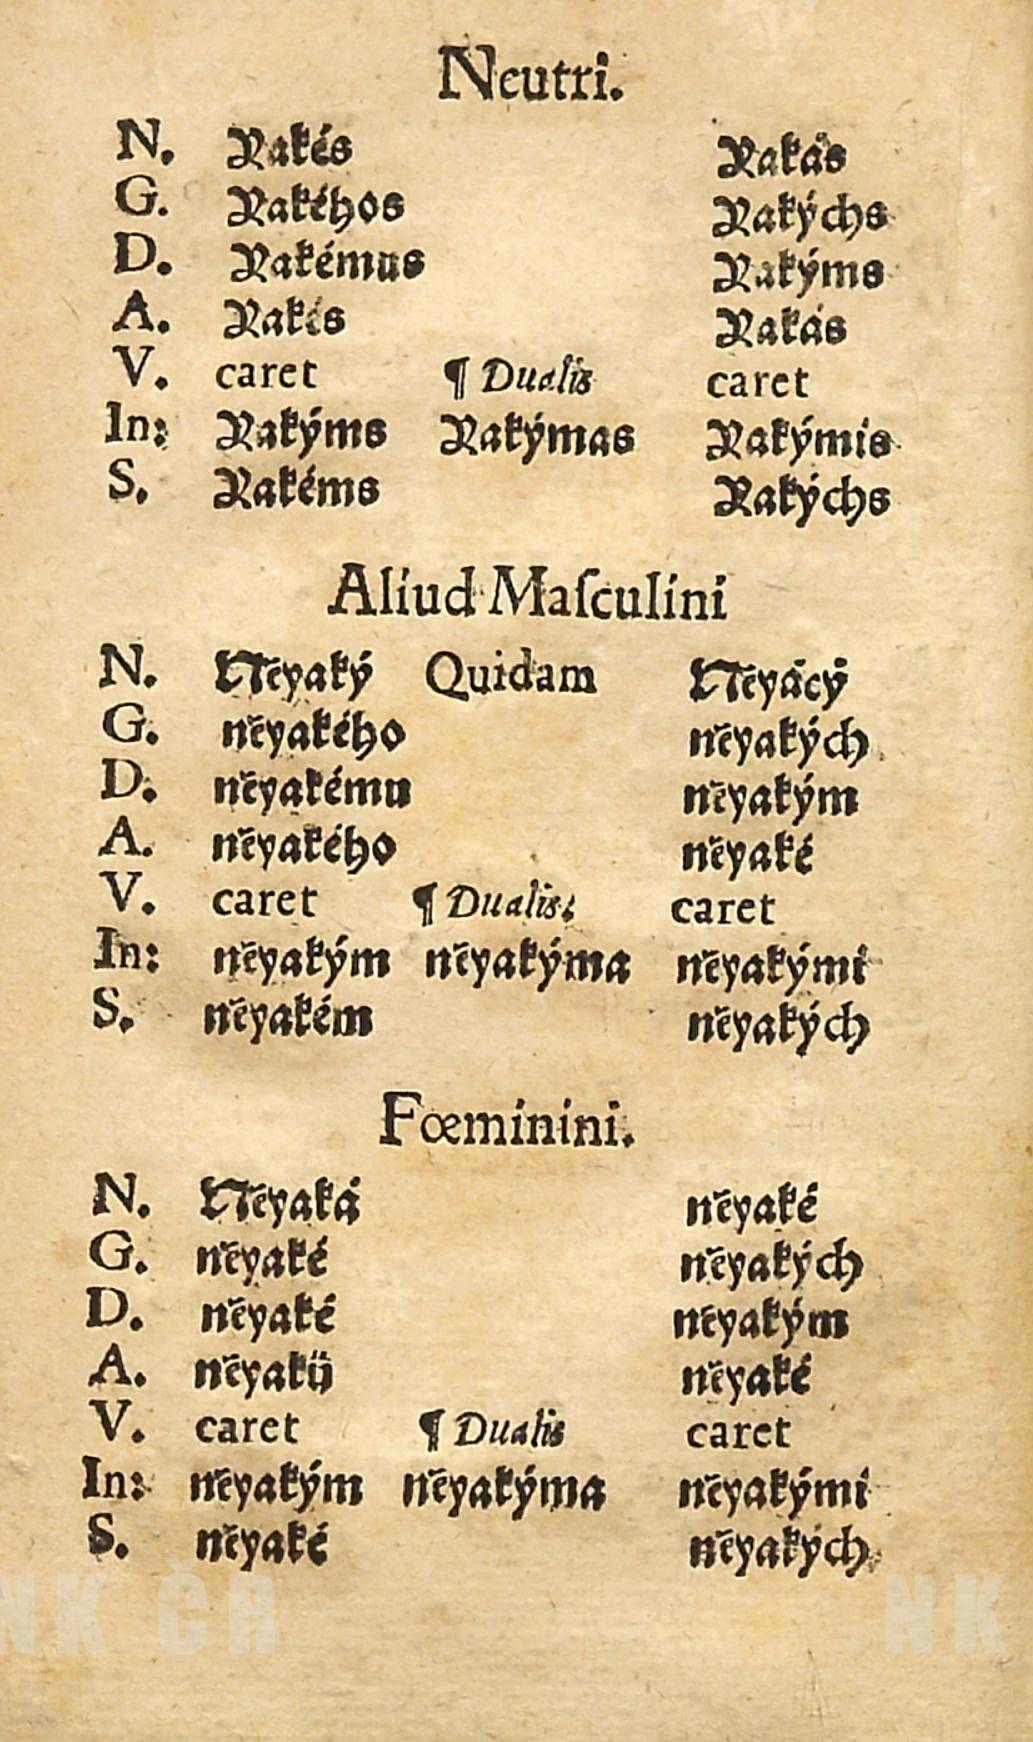 Neutri.
N. Yakés Yakás
G. Yakéhos Yakýchs
D. Yakémus Yakýms
A. Yakés Yakás
V. caret ¶ Dualis caret
In: Yakýms Yakýmas Yakýmis
S. Yakéms Yakýchs
Aliud Maſculini
N. Něyaký Quidam Něyácý
G. něyakého něyakých
D. něyakému něyakým
A. něyakého něyaké
V. caret ¶ Dualis: caret
In: něyakým něyakýma něyakými
S. něyakém něyakých
Fœminini.
N. Něyaká něyaké
G. něyaké něyakých
D. něyaké něyakým
A. něyakü něyaké
V. caret ¶ Dualis caret
In: něyakým něyakýma něyakými
S. něyaké něyakých
NK ČR NK